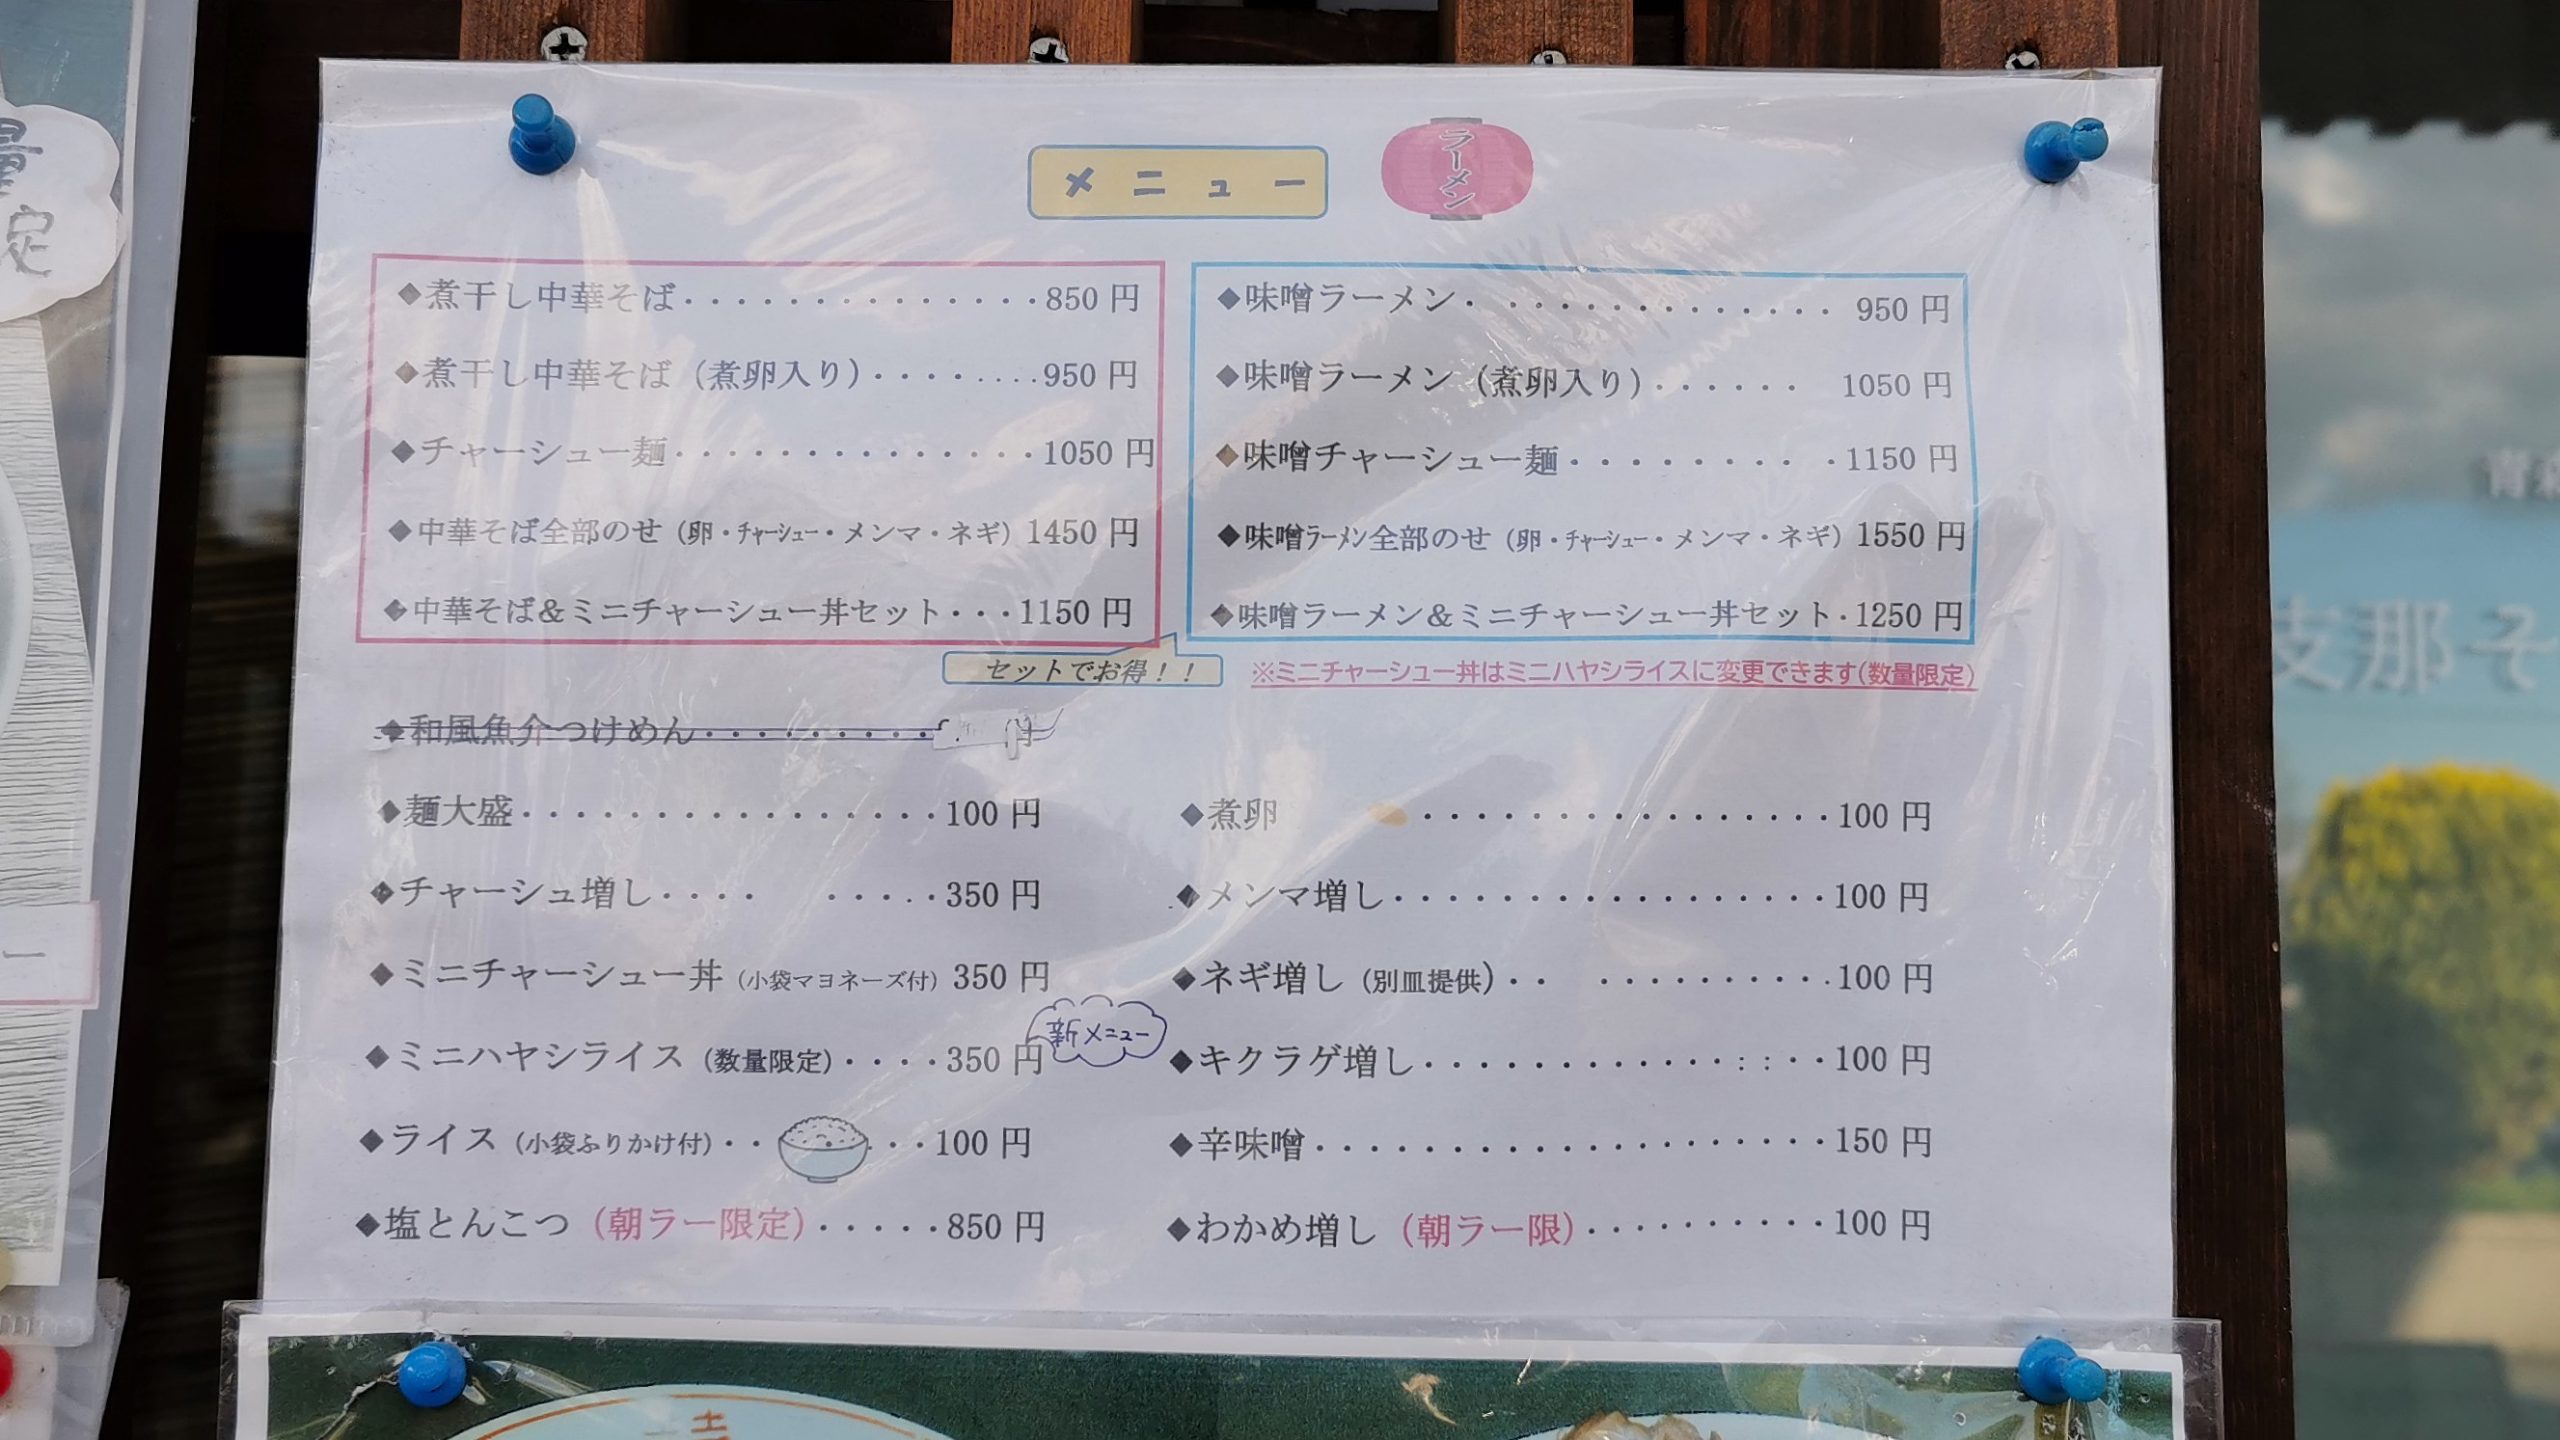 メニュー
ラーメン
◆煮干し中華そば・・・・・・・・・・・・・・850円
◆煮干し中華そば（煮卵入り）・・・・・・・・950円
◆チャーシュー麺・・・・・・・・・・・・・・1050円
◆中華そば全部のせ（卵・チャーシュー・メンマ・ネギ）1450円
◆中華そば＆ミニチャーシュー丼セット・・・1150円
◆味噌ラーメン・・・・・・・・・・・・・・950円
◆味噌ラーメン（煮卵入り）・・・・・・1050円
◆味噌チャーシュー麺・・・・・・・・・・1150円
◆味噌ラーメン全部のせ（卵・チャーシュー・メンマ・ネギ）1550円
◆味噌ラーメン＆ミニチャーシュー丼セット・1250円
セットでお得！！
※ミニチャーシュー丼はミニハヤシライスに変更できます(数量限定)
◆和風魚介つけめん・・・・・・・・・円
◆麺大盛・・・・・・・・・・・・・・・・100円
◆チャーシュ増し・・・・ ・・・・・350円
◆ミニチャーシュー丼（小袋マヨネーズ付）350円
◆ミニハヤシライス（数量限定）・・・・350円
◆ライス（小袋ふりかけ付）・・ ・・・100円
◆塩とんこつ（朝ラー限定）・・・・・850円
新メニュー
◆煮卵 ・・・・・・・・・・・・・・・・100円
◆メンマ増し・・・・・・・・・・・・・・・・・100円
◆ネギ増し（別皿提供）・・ ・・・・・・・・・・100円
◆キクラゲ増し・・・・・・・・・・・・：：・・100円
◆辛味噌・・・・・・・・・・・・・・・・・・・・150円
◆わかめ増し（朝ラー限）・・・・・・・・・・100円
量
定
ー
支那そ